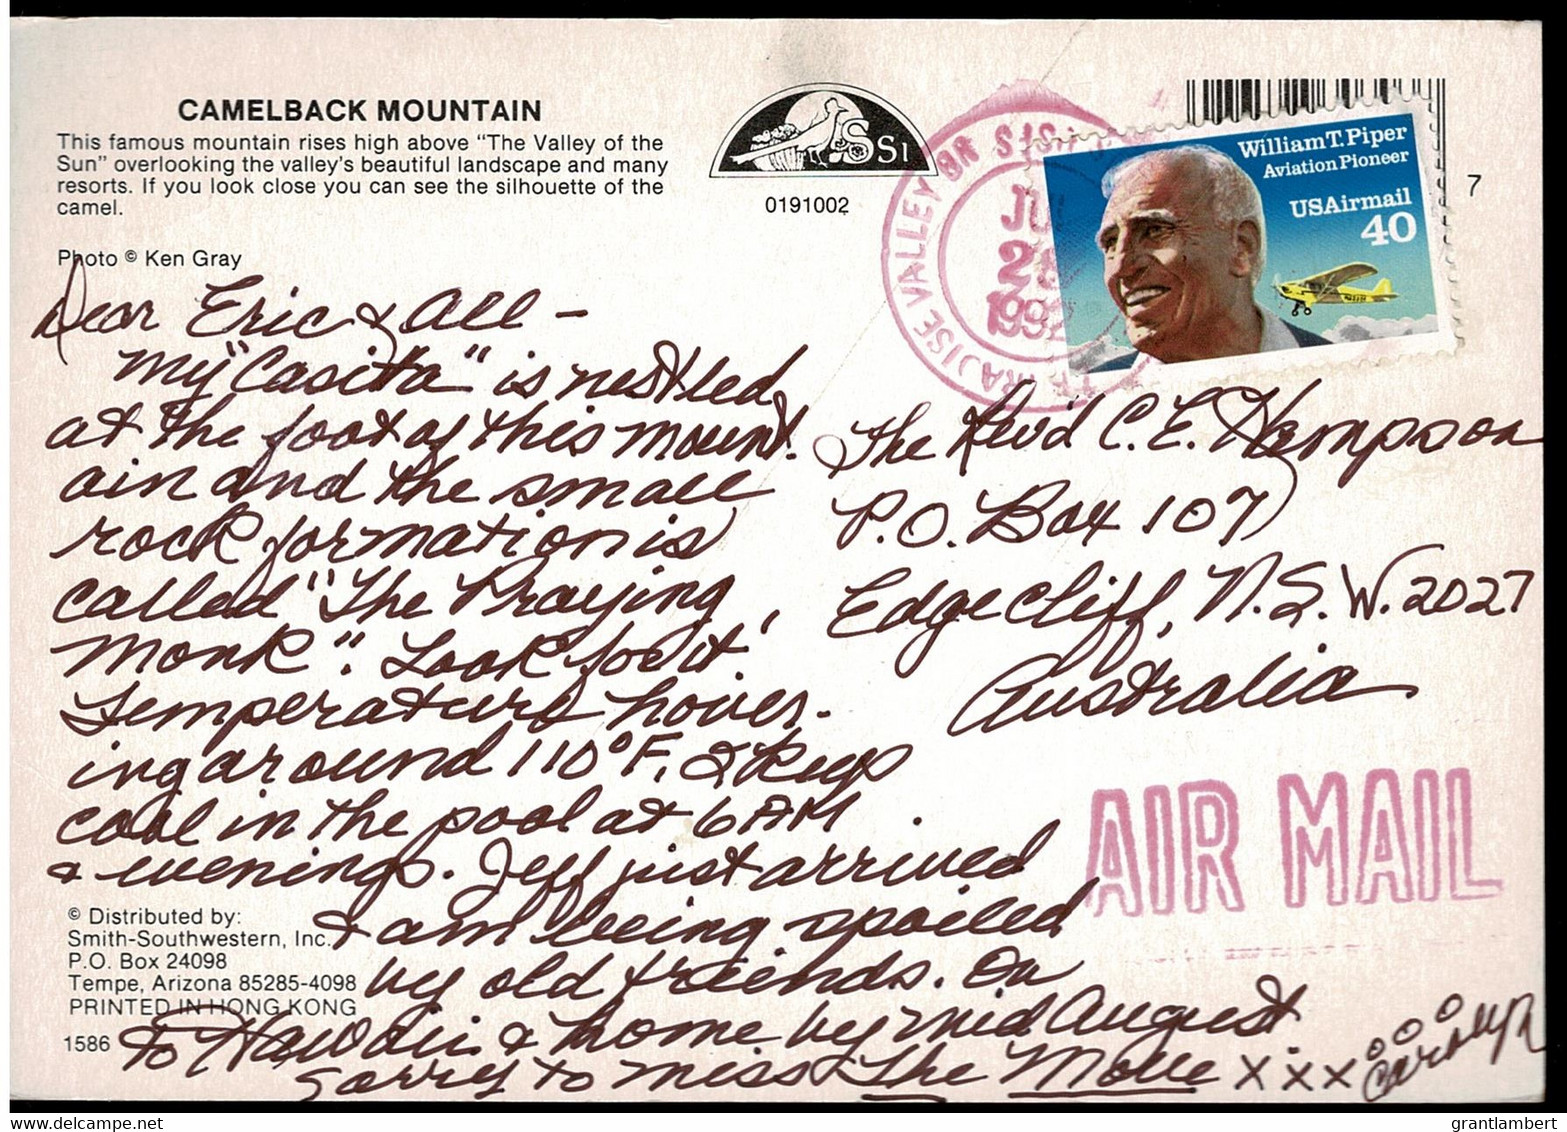 CAMELBACK MOUNTAIN
This famous mountain rises high above "The Valley of the
Sun" overlooking the valley's beautiful landscape and many
resorts. If you look close you can see the silhouette of the
camel.
Photo © Ken Gray
SSI
0191002
7
William T. Piper
Aviation Pioneer
USAirmail
40
VALLEY
1992
Dear Eric & All -
My "Casita" is nestled
at the foot of this mount-
ain and the small
rock formation is
called "The Praying
Monk". Look for it!
Temperature hover-
ing around 110°F. I keep
cool in the pool at 6 AM
& evenings. Jeff just arrived
& am being spoiled
by old friends. On
to Hawaii & home by mid August.
Sorry to miss The Move xxx
Carolyn
The Rev'd C. E. Hempson
P.O. Box 107
Edgecliff, N.S.W. 2027
Australia
AIR MAIL
© Distributed by:
Smith-Southwestern, Inc.
P.O. Box 24098
Tempe, Arizona 85285-4098
PRINTED IN HONG KONG
1586
delcampe.net
grantlambert